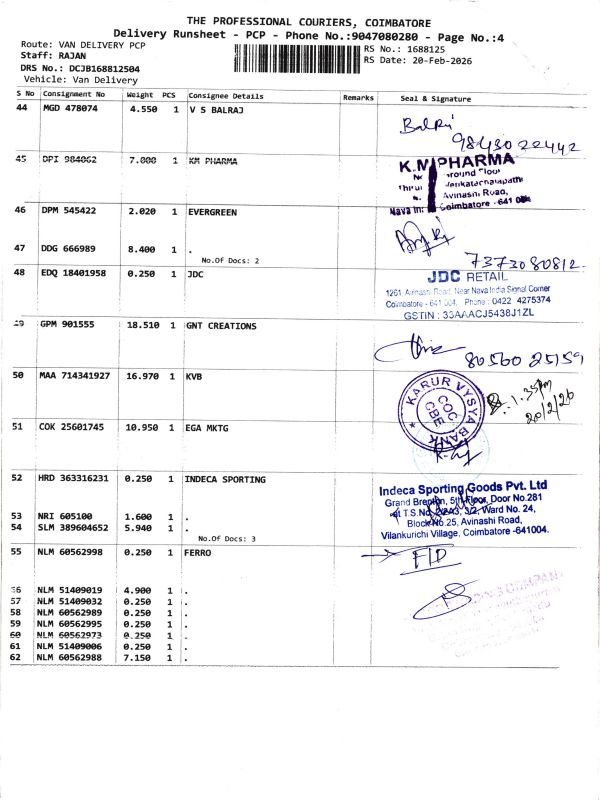 THE PROFESSIONAL COURIERS, COIMBATORE
Delivery Runsheet - PCP - Phone No.:9047080280 - Page No.:4
Route: VAN DELIVERY PCP
Staff: RAJAN
DRS No.: DCJB168812504
Vehicle: Van Delivery
RS No.: 1688125
RS Date: 20-Feb-2026
S No Consignment No Weight PCS Consignee Details Remarks Seal & Signature
44 MGD 478074 4.550 1 V S BALRAJ
Balraj
9843022442
45 DPI 984062 7.000 1 KM PHARMA
K.M PHARMA
Ground Floor
Venkatachalapathi
Avinashi Road,
Nava In: Coimbatore - 641 004
46 DPM 545422 2.020 1 EVERGREEN
47 DDG 666989 8.400 1 .
No.Of Docs: 2
7373080812
48 EDQ 18401958 0.250 1 JDC
JDC RETAIL
1261, Avinashi Road, Near Nava India Signal Corner
Coimbatore - 641 004. Phone : 0422 4275374
GSTIN : 33AAACJ5438J1ZL
49 GPM 901555 18.510 1 GNT CREATIONS
80560 25159
50 MAA 714341927 16.970 1 KVB
KARUR VYSYA BANK
COC
CBE
1.35pm
20/2/26
51 COK 25601745 10.950 1 EGA MKTG
52 HRD 363316231 0.250 1 INDECA SPORTING
Indeca Sporting Goods Pvt. Ltd
Grand Brenton, 5th Floor, Door No.281
T.S.No. 3/2, Ward No. 24,
Block No.25, Avinashi Road,
Vilankurichi Village, Coimbatore -641004.
53 NRI 605100 1.600 1 .
54 SLM 389604652 5.940 1 .
No.Of Docs: 3
55 NLM 60562998 0.250 1 FERRO
F/D
56 NLM 51409019 4.900 1 .
57 NLM 51409032 0.250 1 .
58 NLM 60562989 0.250 1 .
59 NLM 60562995 0.250 1 .
60 NLM 60562973 0.250 1 .
61 NLM 51409006 0.250 1 .
62 NLM 60562988 7.150 1 .